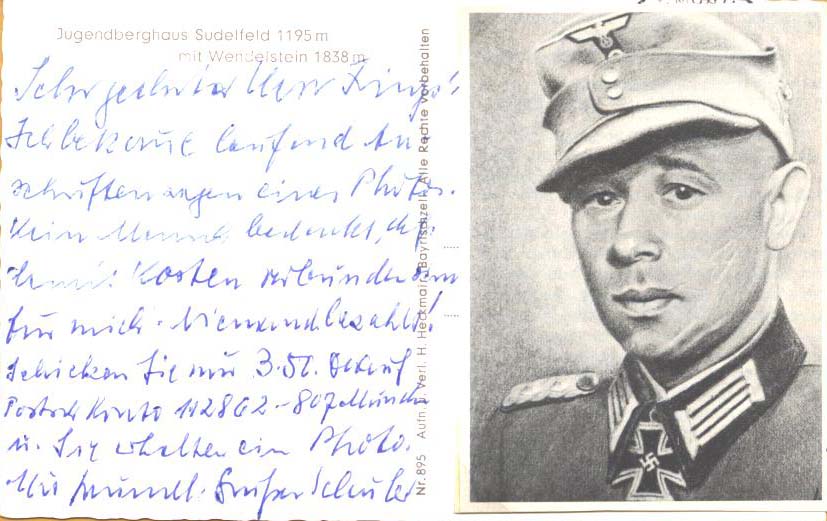 Jugendberghaus Sudelfeld 1195 m
mit Wendelstein 1838 m
Sehr geehrter Herr
Ich bekomme laufend An
schriften wegen eines Photos.
Kein Mensch bedenkt, daß
damit Kosten verbunden sind
für mich. Niemand bezahlt!
Schicken Sie mir 3.50. DM auf
Postsch Konto 112862-807 München
u. Sie erhalten ein Photo.
Mit freundl. Grüßen Schuler
Nr. 895 Aufn. u. Verl. H. Heckmair, Bayrischzell. Alle Rechte vorbehalten